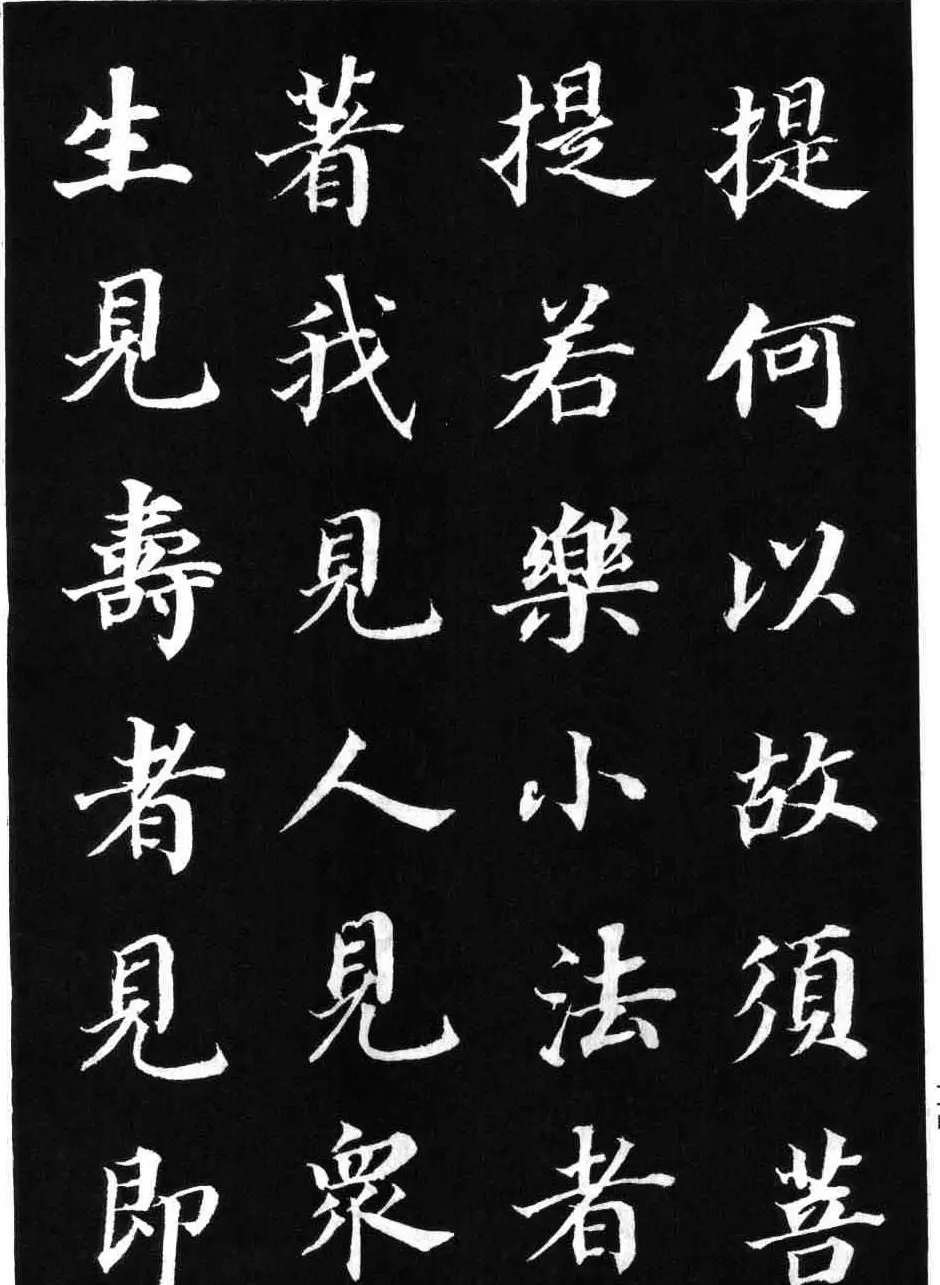 提何以故須菩
提若樂小法者
著我見人見衆
生見壽者見即